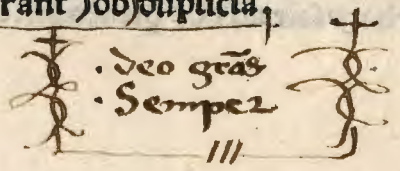 rant Jobsuplicia
· deo grãs
· Semper
III